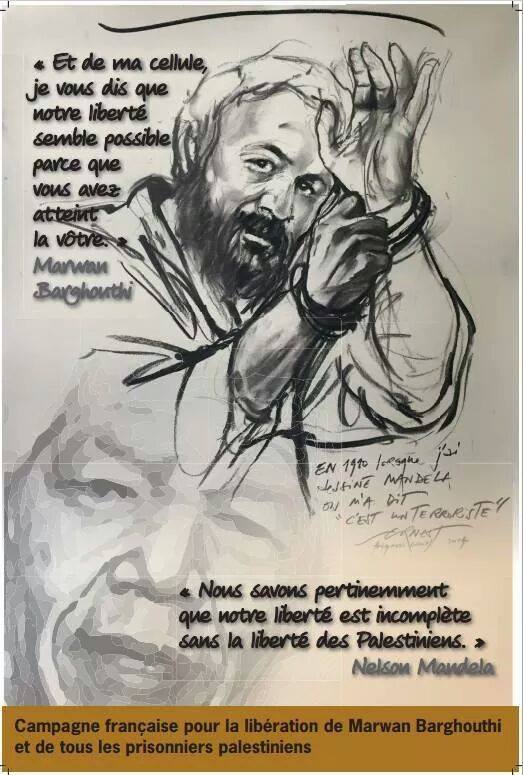 « Et de ma cellule,
je vous dis que
notre liberté
semble possible
parce que
vous avez
atteint
la vôtre. »
Marwan
Barghouthi
EN 1980 lorsque j'ai
DESSINÉ MANDELA
ON M'A DIT
"C'EST UN TERRORISTE"
ERNEST
« Nous savons pertinemment
que notre liberté est incomplète
sans la liberté des Palestiniens. »
Nelson Mandela
Campagne française pour la libération de Marwan Barghouthi
et de tous les prisonniers palestiniens